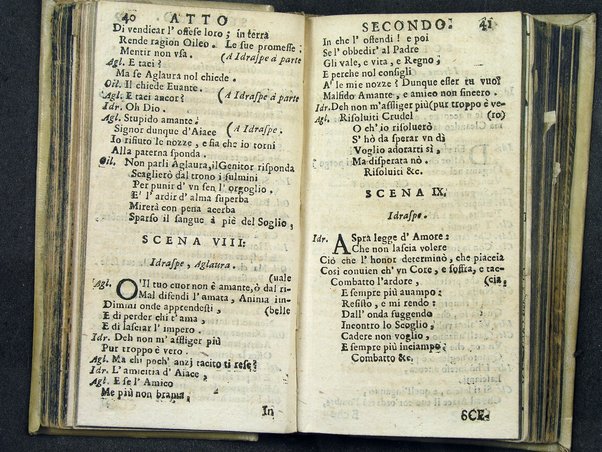 40 ATTO
Di vendicar l' offese loro; in terra
Rende ragion Oileo. Le sue promesse;
Mentir non vsa. (A Idraspe à parte
Agl. E taci?
Ma se Aglaura nol chiede.
Oil. Il chiede Euante.
Agl. E taci ancor? (A Idraspe à parte
Idr. Oh Dio.
Agl. Stupido amante:
Signor dunque d'Aiace (A Idraspe.
Io rifiuto le nozze, e sia che io torni
Alla paterna sponda.
Oil. Non parli Aglaura, il Genitor risponda
Scaglierò dal trono i fulmini
Per punir d' vn sen l' orgoglio.
E' l' ardir d' alma superba
Mirerà con pena acerba
Sparso il sangue à piè del Soglio,
SCENA VIII:
Idraspe, Aglaura.
(uale
Agl. O'Il tuo cuor non è amante, ò dal ri-
Mal difendi l' amata, Anima im-
Dimmi onde apprendesti, (belle
E di perder chi t' ama,
E di lasciar l' impero.
Idr. Deh non m' affliger più
Pur troppo è vero.
Agl. Ma chi poch' anzj tacito ti rese?
Idr. L' amicitia d' Aiace,
Agl. E se l' Amico
Me più non brama,
In
SECONDO: 41
In che l' ostendi! e poi
Se l' obbedir' al Padre
Gli vale, e vita, e Regno;
E perche nol consigli
A' le mie nozze? Dunque esser tu vuoi
Malfido Amante, e amico non sincero.
Idr. Deh non m'affliger più (pur troppo è ve-
Agl. Risoluiti Crudel (ro)
O ch' io risoluerò
S' hò da sperar vn dì
Voglio adorarti sì,
Ma disperata nò.
Risoluiti &c.
SCENA IX.
Idraspe.
Idr. ASprà legge d' Amore:
Che non lascia volere
Ciò che l' honor determinò, che piaccia
Così conuien ch' vn Core, e soffra, e tac-
Combatto l'ardore, (cia,
E sempre più auampo:
Resisto, e mi rendo:
Dall' onda fuggendo
Incontro lo Scoglio,
Cadere non voglio,
E sempre più inciampo:
Combatto &c.
SCE-